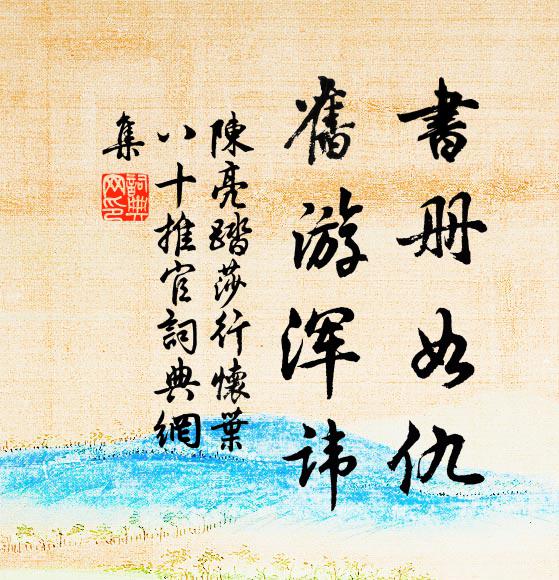 書册如仇
舊游浑讳
陳亮踏莎行懷葉
八十推官詞典網
集
詞典網印